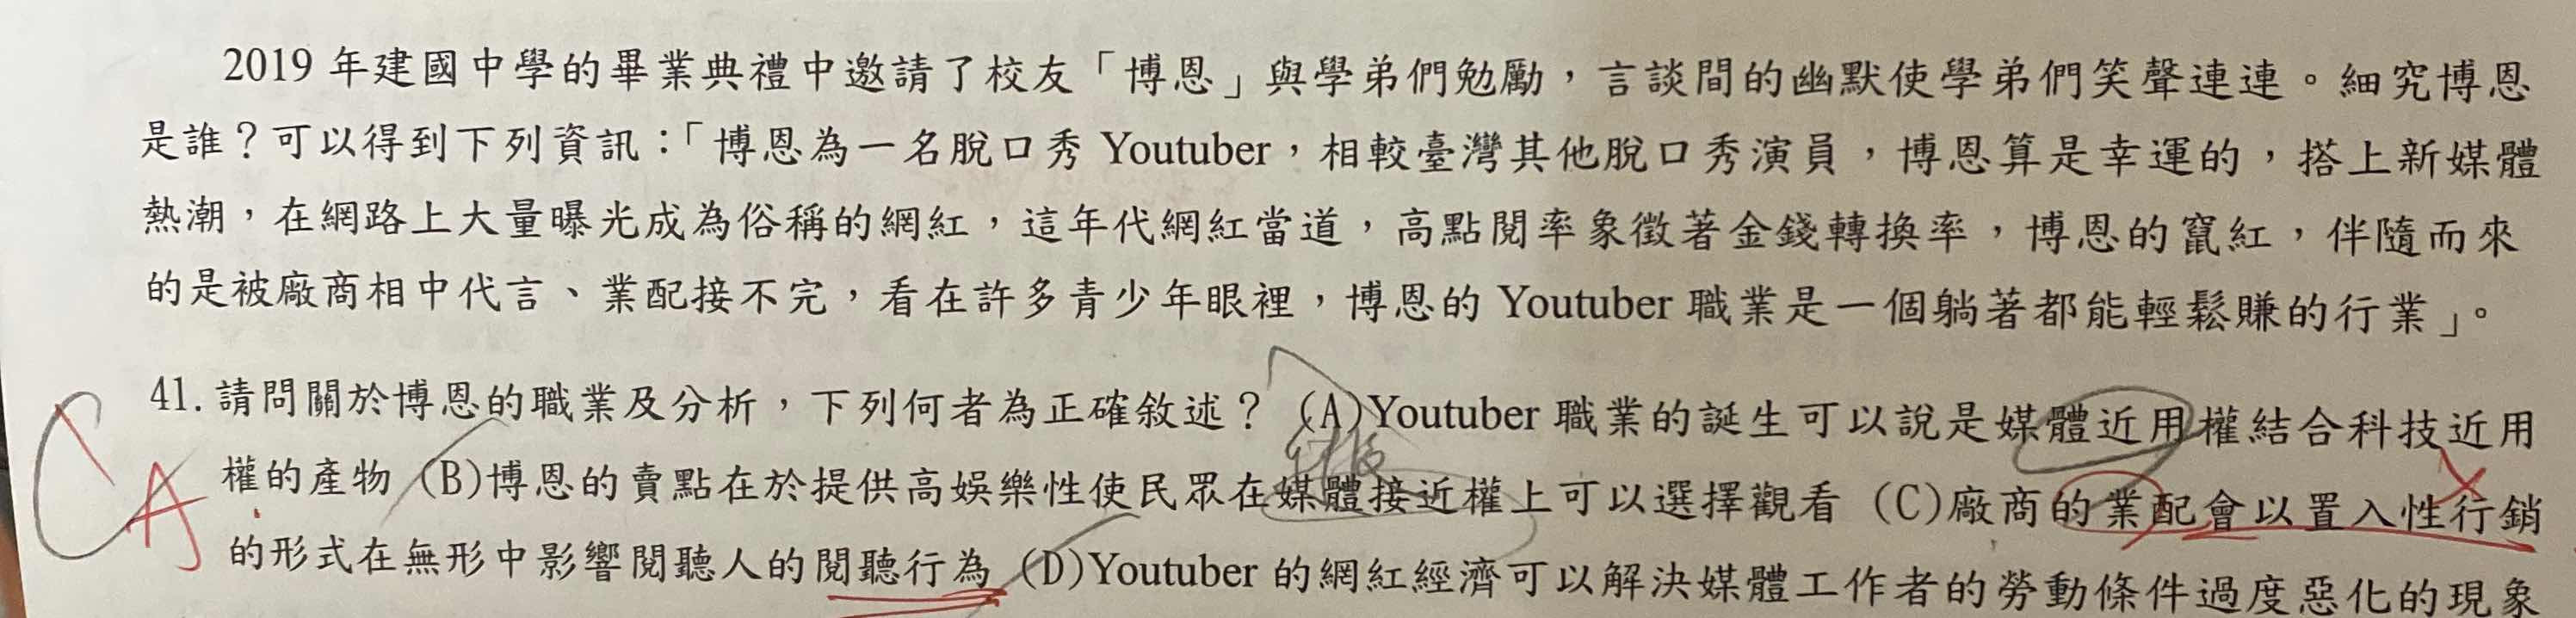 2019 年建國中學的畢業典禮中邀請了校友「博恩」與學弟們勉勵，言談間的幽默使學弟們笑聲連連。細究博恩
是誰？可以得到下列資訊：「博恩為一名脫口秀 Youtuber，相較臺灣其他脫口秀演員，博恩算是幸運的，搭上新媒體
熱潮，在網路上大量曝光成為俗稱的網紅，這年代網紅當道，高點閱率象徵著金錢轉換率，博恩的竄紅，伴隨而來
的是被廠商相中代言、業配接不完，看在許多青少年眼裡，博恩的 Youtuber 職業是一個躺著都能輕鬆賺的行業」。
41. 請問關於博恩的職業及分析，下列何者為正確敘述？ (A)Youtuber 職業的誕生可以說是媒體近用權結合科技近用
權的產物 (B)博恩的賣點在於提供高娛樂性使民眾在媒體接近權上可以選擇觀看 (C)廠商的業配會以置入性行銷
的形式在無形中影響閱聽人的閱聽行為 (D)Youtuber 的網紅經濟可以解決媒體工作者的勞動條件過度惡化的現象
C
A